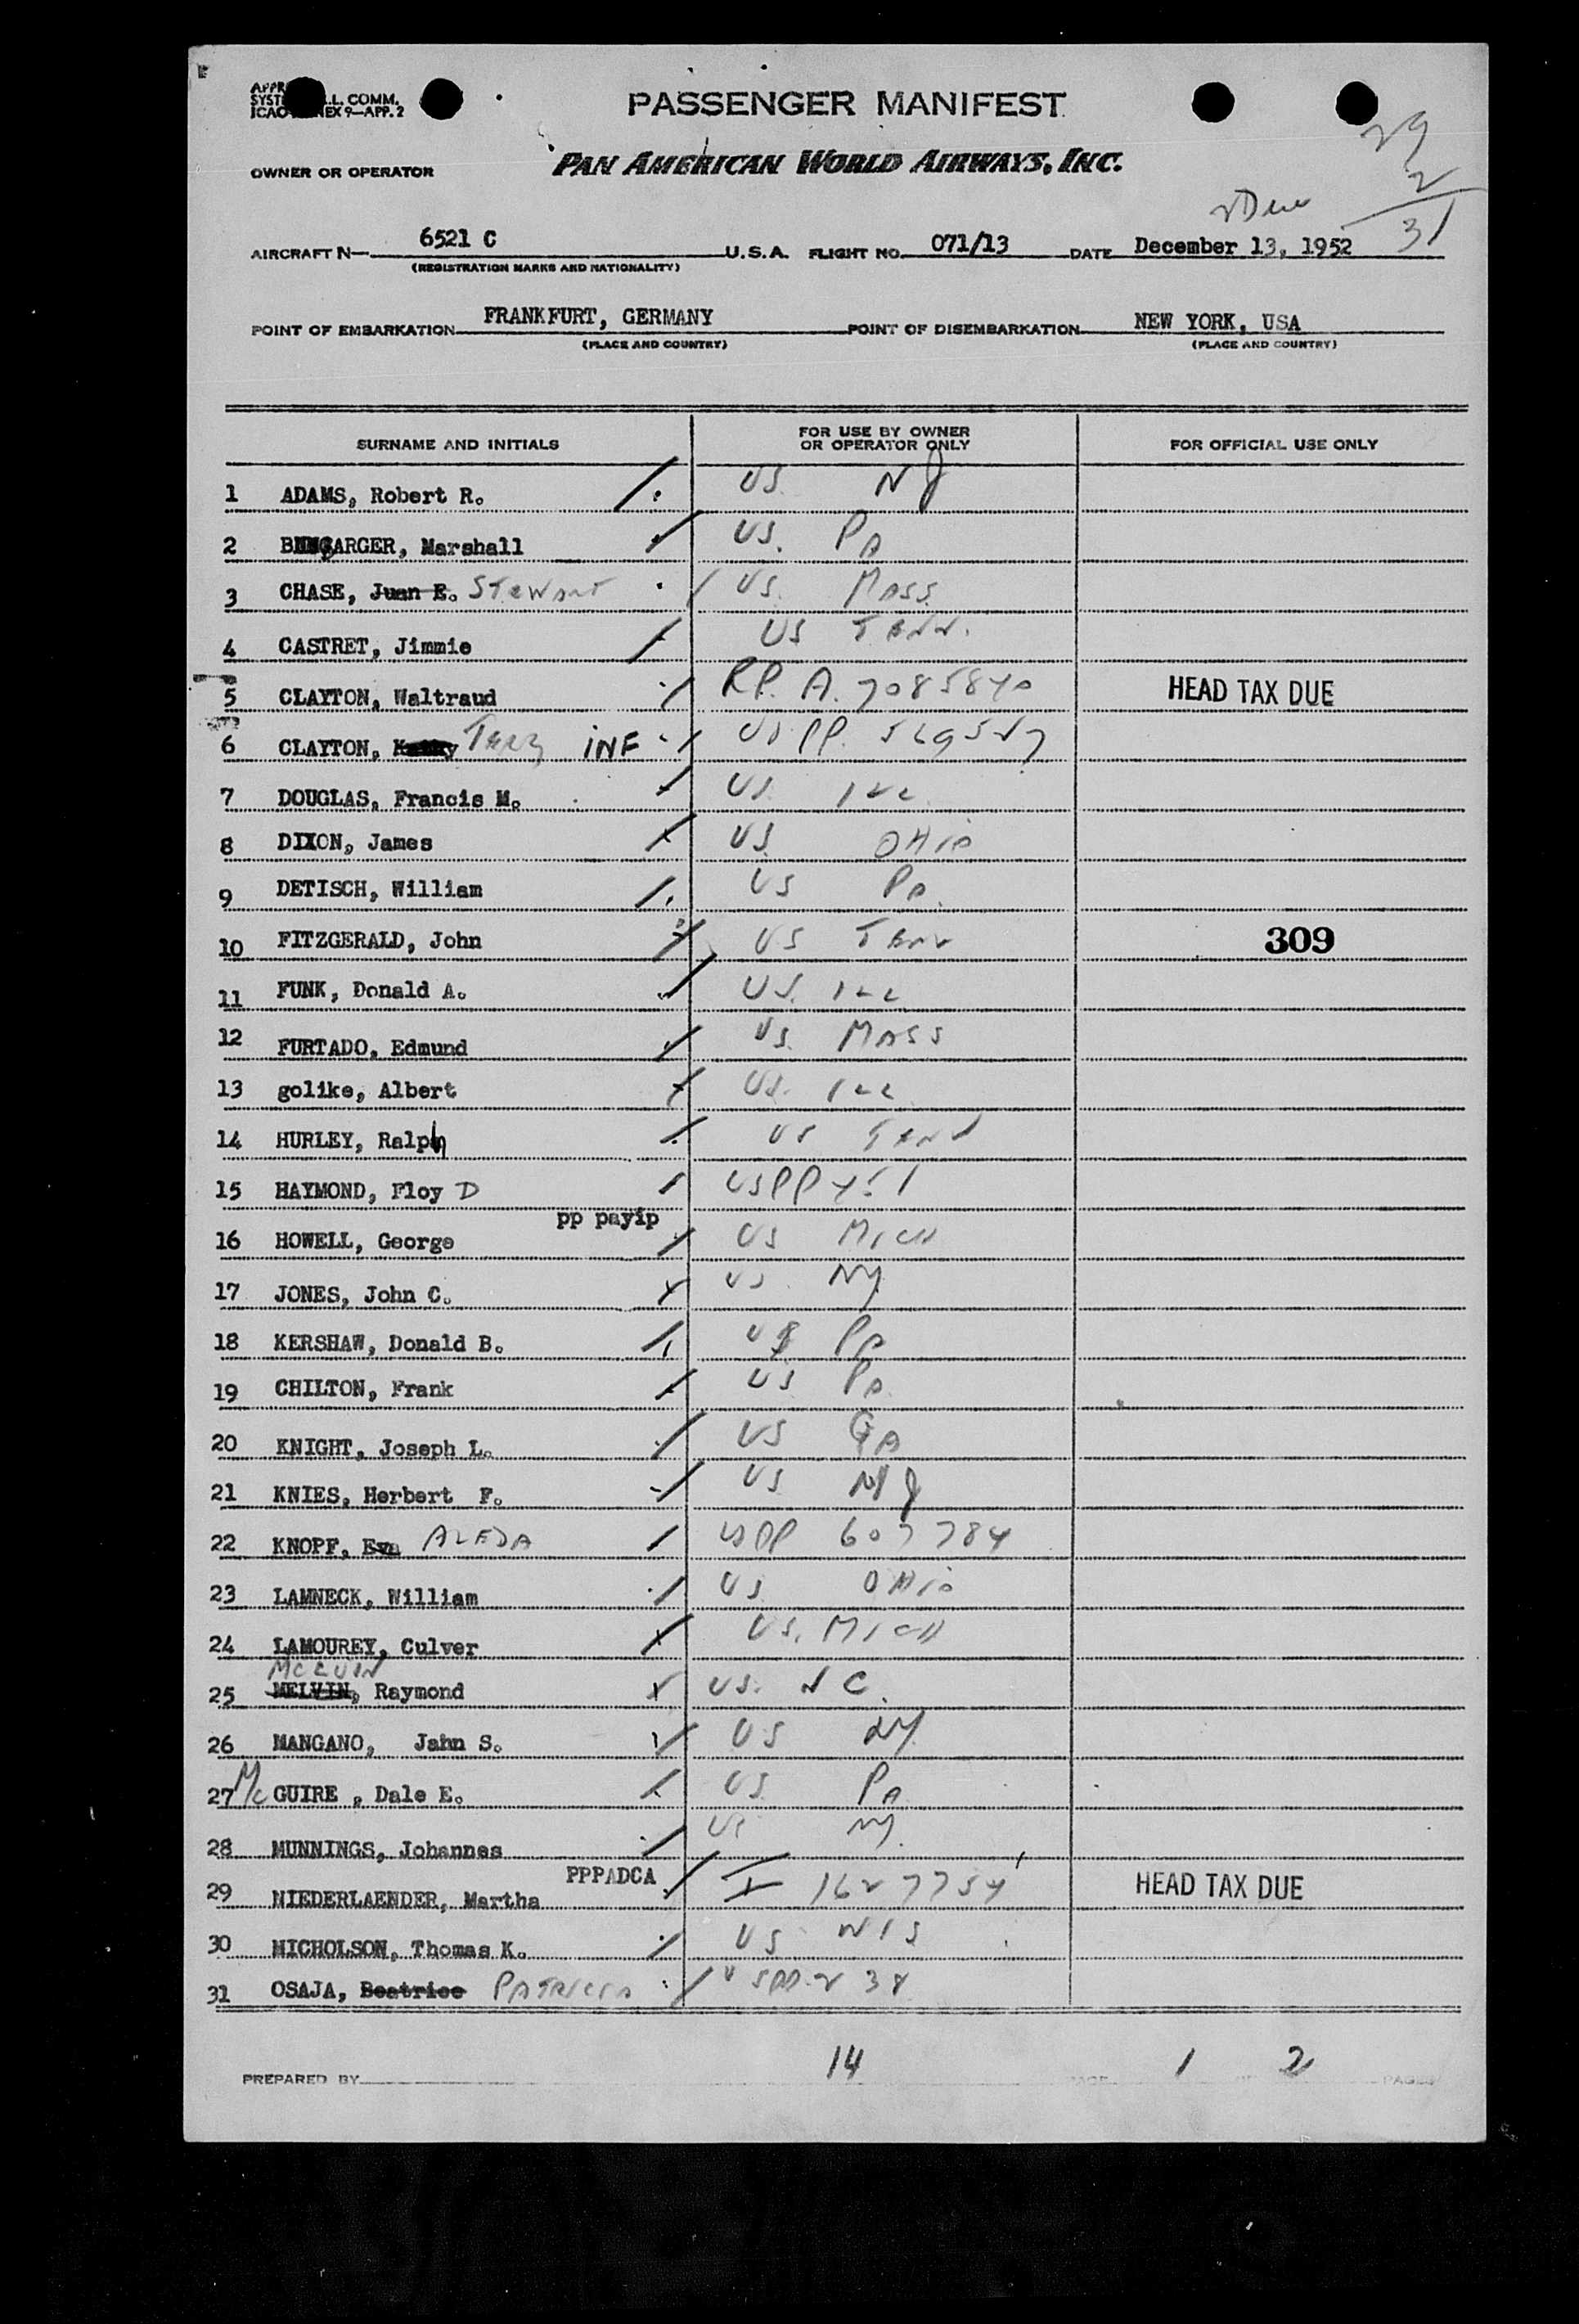 PASSENGER MANIFEST
L. COMM.
ICAO EX 9—APP. 2
OWNER OR OPERATOR PAN AMERICAN WORLD AIRWAYS, INC.
29
2
31
AIRCRAFT N— 6521 C U.S.A. FLIGHT NO. 071/13 DATE December 13, 1952
(REGISTRATION MARKS AND NATIONALITY)
POINT OF EMBARKATION FRANKFURT, GERMANY POINT OF DISEMBARKATION NEW YORK, USA
(PLACE AND COUNTRY) (PLACE AND COUNTRY)
SURNAME AND INITIALS FOR USE BY OWNER OR OPERATOR ONLY FOR OFFICIAL USE ONLY
1 ADAMS, Robert R. US NJ
2 Marshall US. PA
3 CHASE, Juan E. STEWART US. MASS.
4 CASTRET, Jimmie US TENN.
5 CLAYTON, Waltraud RP. A. 7085840 HEAD TAX DUE
6 CLAYTON, INF US PP.
7 DOUGLAS, Francis M. US. ILL
8 DIXON, James US. OHIO
9 DETISCH, William US PA.
10 FITZGERALD, John US TENN 309
11 FUNK, Donald A. US. ILL
12 FURTADO, Edmund US. MASS
13 golike, Albert US. ILL
14 HURLEY, Ralph US TENN
15 HAYMOND, Floy D USPP 451
pp payip
16 HOWELL, George US MICH
17 JONES, John C. US NY
18 KERSHAW, Donald B. US PA
19 CHILTON, Frank US PA
20 KNIGHT, Joseph L. US GA
21 KNIES, Herbert F. US NJ
22 KNOPF, Eva ALEDA USPP 607784
23 LAMNECK, William US OHIO
24 LAMOUREY, Culver US. MICH
25 MELVIN, Raymond US. NC.
26 MANGANO, Jahn S. US NY
27 Mc GUIRE , Dale E. US. PA
28 MUNNINGS, Johannes US NY.
PPPADCA
29 NIEDERLAENDER, Martha I 1627754 HEAD TAX DUE
30 NICHOLSON, Thomas K. US WIS
31 OSAJA, Beatrice PATRICIA USPP 238
PREPARED BY 14 1 2 PAGES